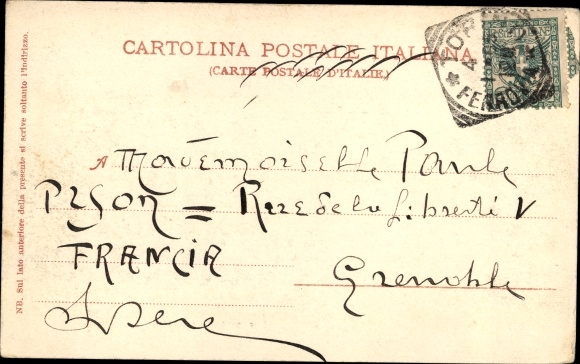 CARTOLINA POSTALE ITALIANA
(CARTE POSTALE D'ITALIE.)
FERROVIA
A Mademoiselle Paule
Rue de la Liberté V
FRANCIA
Grenoble
Isere
NB. Sul lato anteriore della presente si scrive soltanto l'indirizzo.